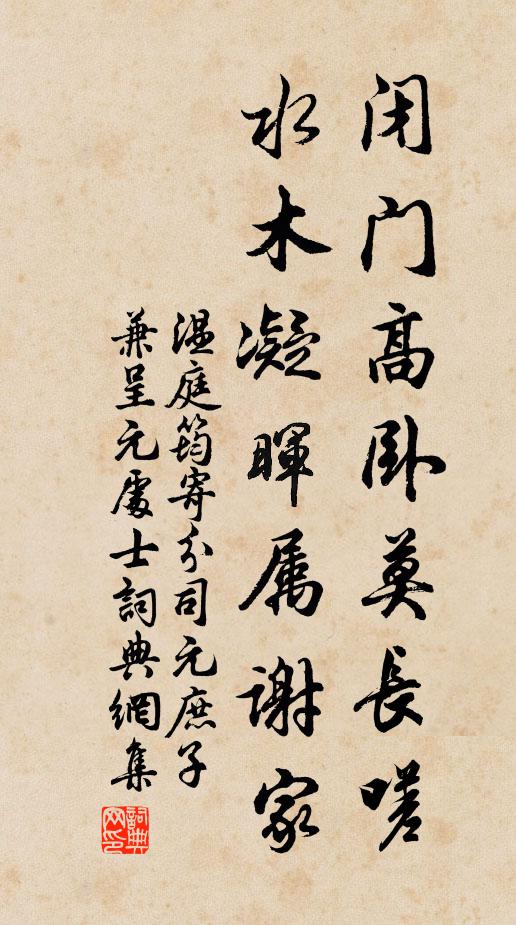 闭门高卧莫长嗟
水木凝晖属谢家
温庭筠寄分司元庶子
兼呈元处士词典网集
词典网印